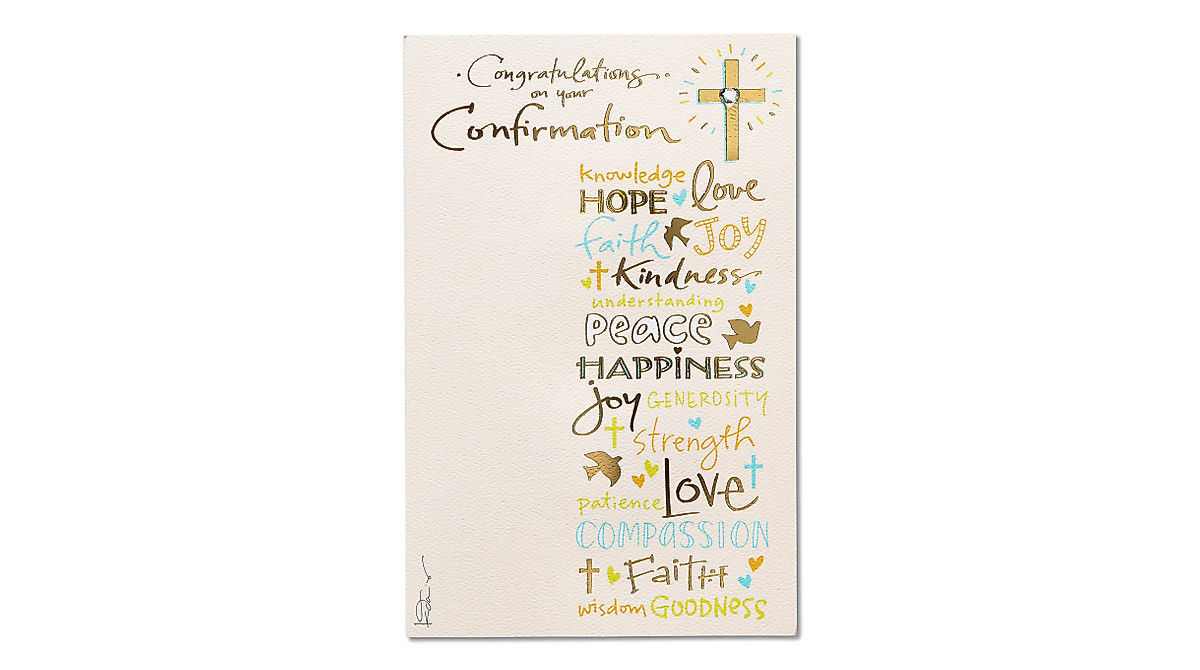 Congratulations
on your
Confirmation
knowledge
HOPE love
faith JOY
kindness
understanding
peace
HAPPiNESS
joy GENEROSITY
strength
patience LOVE
COMPASSION
FAITH
wisdom GOODNESS